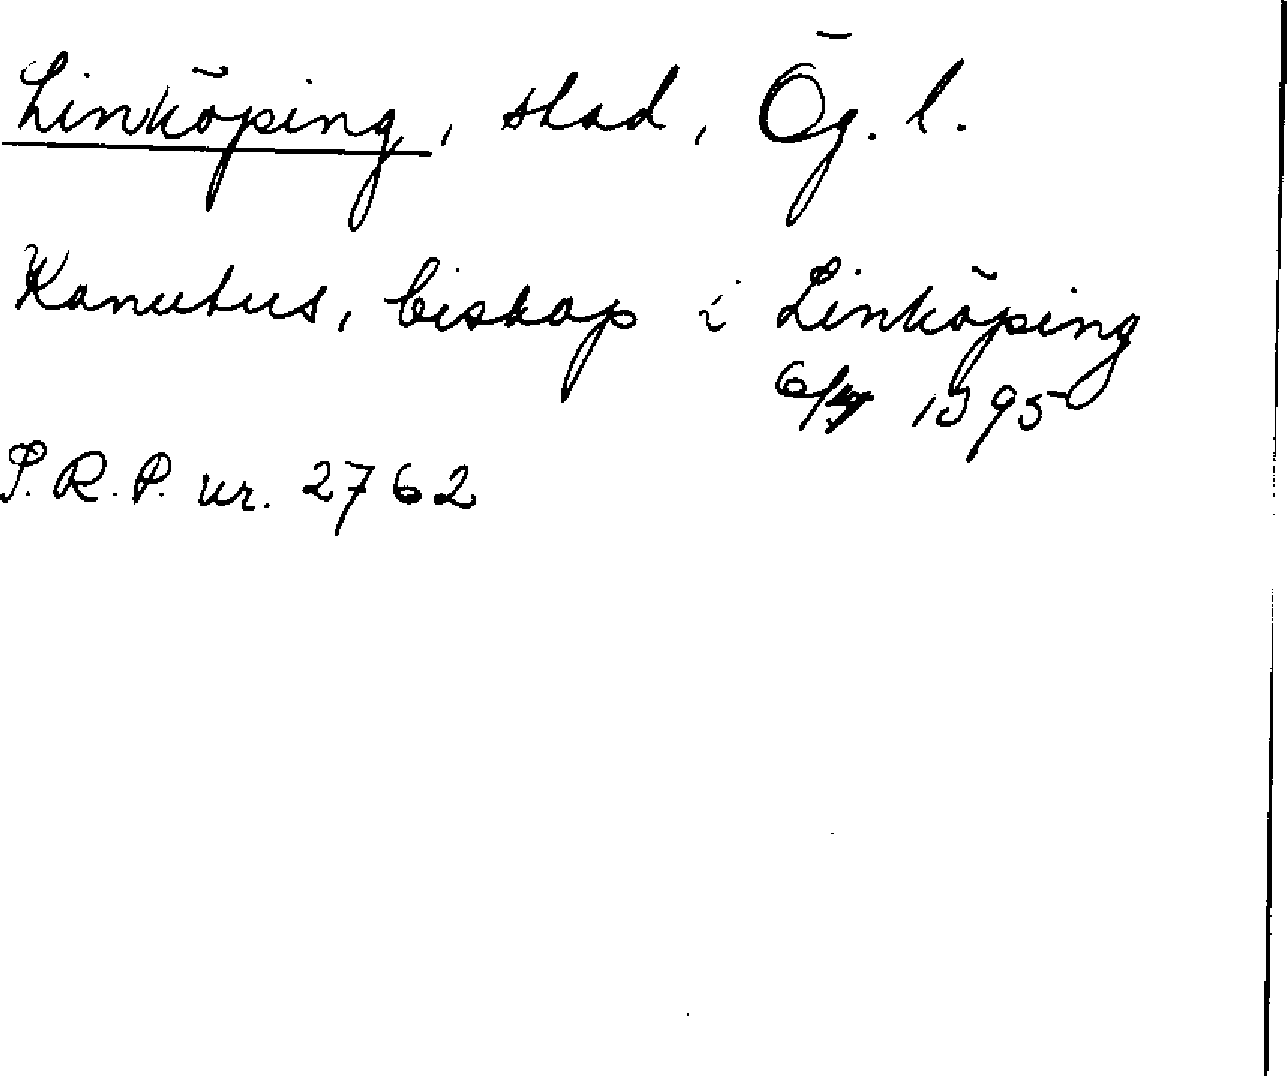 Linköping, stad, Ög. l.
Kanutus, biskop i Linköping
1395
S.R.P. nr. 2762